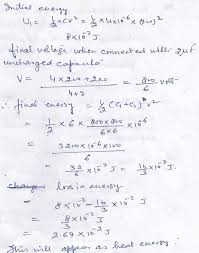 Initial energy
U₁ = ½ × CV² = ½ × 4 × 10⁻⁶ × (200)²
8 × 10⁻² J
final voltage when connected with 2μf
uncharged capacitor
V = 4 × 200 + 2 × 0 / 4+2 = 800/6 volt
∴ final energy = ½ (C₁ + C₂) V²
= ½ × 6 × 800 × 800 / 6 × 6 × 10⁻⁶
= 3200 × 10⁻⁶ × 100 / 6
= 32/6 × 10⁻² J = 16/3 × 10⁻² J.
∴ loss in energy
= 8 × 10⁻² J - 16/3 × 10⁻² J
= 8/3 × 10⁻² J
= 2.67 × 10⁻² J
This will appear as heat energy.